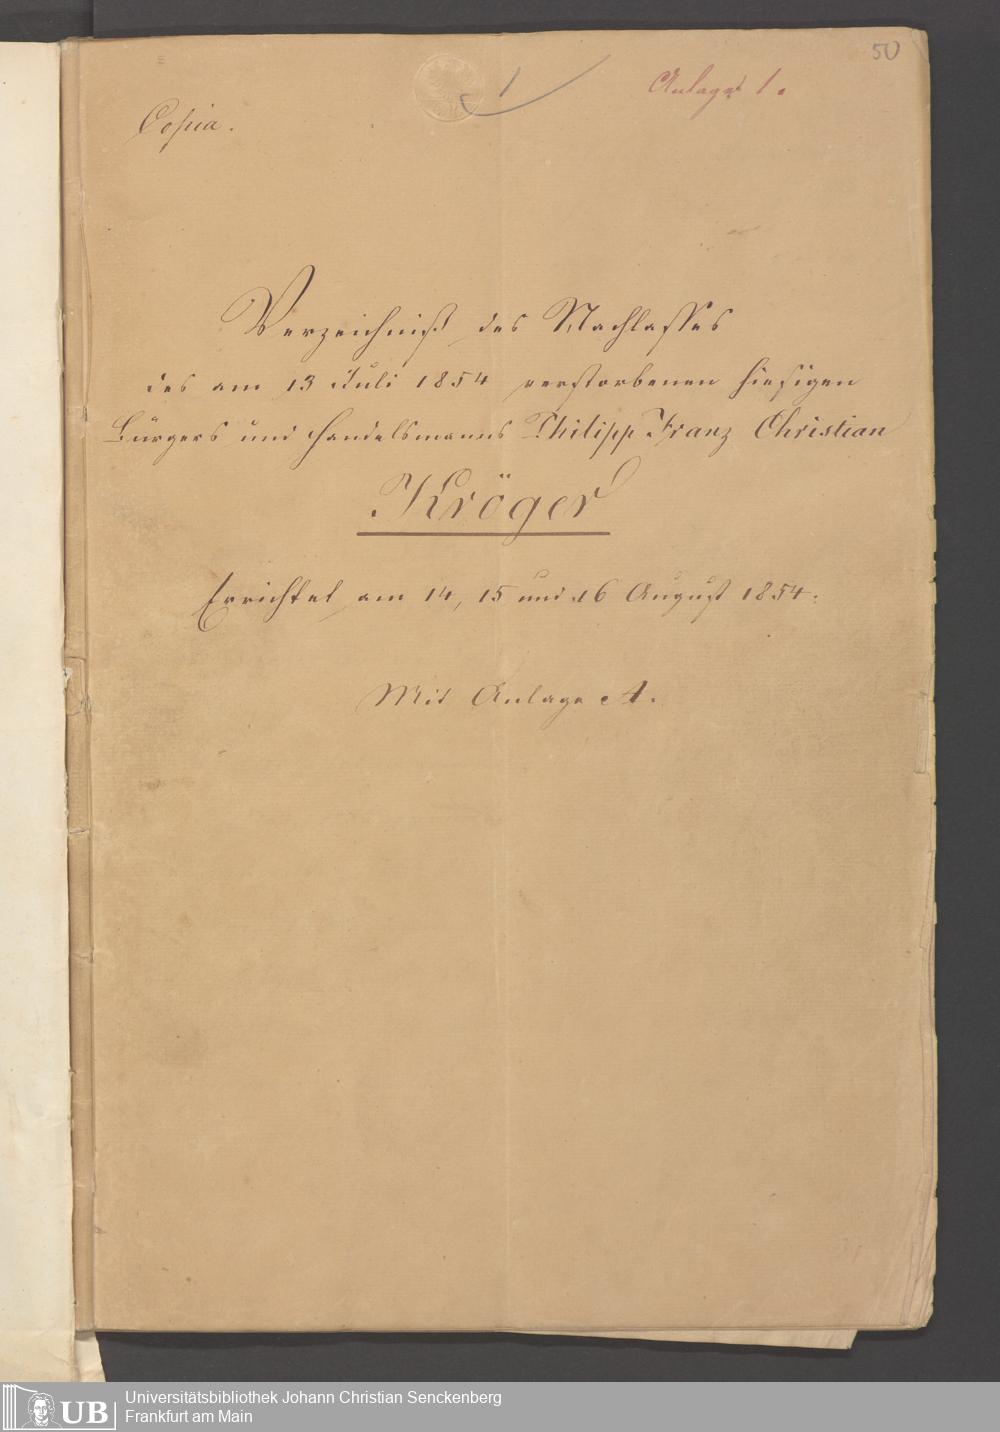 50
1
Anlage 1.
Copia.
Verzeichniß des Nachlasses
des am 13 Juli 1854 verstorbenen hiesigen
Bürgers und Handelsmanns Philipp Franz Christian
Kröger
Errichtet am 14, 15 und 16 August 1854.
Mit Anlage A.
UB
Universitätsbibliothek Johann Christian Senckenberg
Frankfurt am Main